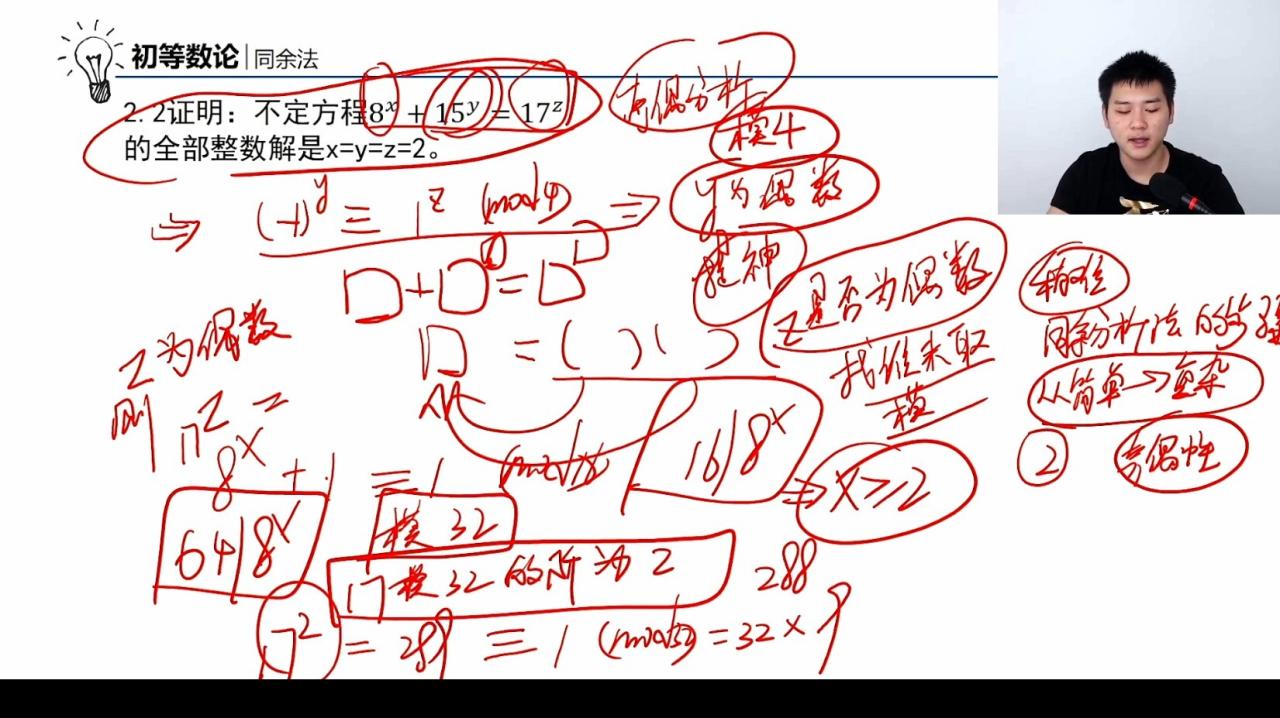 初等数论 | 同余法
2. 2证明：不定方程8^x + 15^y = 17^z
的全部整数解是x=y=z=2。
奇偶分析
模4
⇒ (-1)^y ≡ 1^z (mod4) ⇒ y为偶数
□+□=□
精神
z是否为偶数
□ = ( )( )
找谁来取
模
同余分析法的步骤
从简单→复杂
② 奇偶性
z为偶数
则 17^z =
8^x + 1 ≡ 1
16|8^x ⇒ x≥2
64|8^x
模 32
17模32的阶为2
288
17^2 = 289 ≡ 1 (mod32) = 32×9